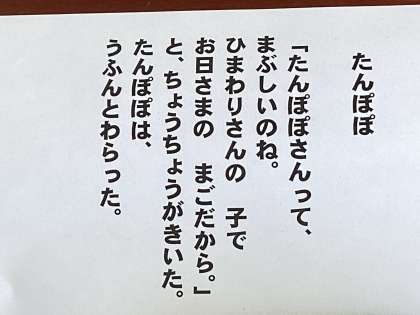 たんぽぽ
「たんぽぽさんって、
まぶしいのね。
ひまわりさんの　子で
お日さまの　まごだから。」
と、ちょうちょうがきいた。
たんぽぽは、
うふんとわらった。